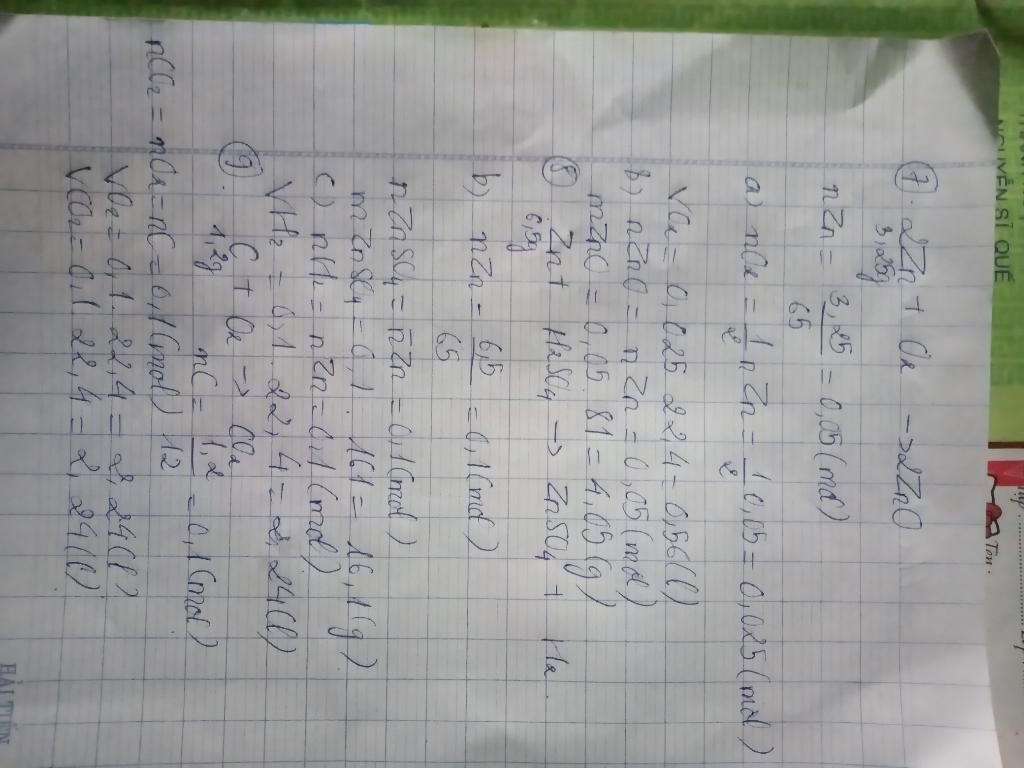 7. 2Zn + O2 → 2ZnO
3,25g
nZn = 3,25/65 = 0,05 (mol)
a) nO2 = 1/2 nZn = 1/2 0,05 = 0,025 (mol)
VO2 = 0,025 22,4 = 0,56 (l)
b) nZnO = nZn = 0,05 (mol)
mZnO = 0,05 81 = 4,05 (g)
8 Zn + H2SO4 → ZnSO4 + H2.
6,5g
b) nZn = 6,5/65 = 0,1 (mol)
nZnSO4 = nZn = 0,1 (mol)
mZnSO4 = 0,1 161 = 16,1 (g)
c) nH2 = nZn = 0,1 (mol)
VH2 = 0,1 . 22,4 = 2,24 (l)
9. C + O2 → CO2
1,2g nC = 1,2/12 = 0,1 (mol)
nCO2 = nO2 = nC = 0,1 (mol)
VO2 = 0,1 . 22,4 = 2,24 (l)
VCO2 = 0,1 22,4 = 2,24 (l)
NGUYỄN SĨ QUẾ
Tên:
HẢI TIẾN